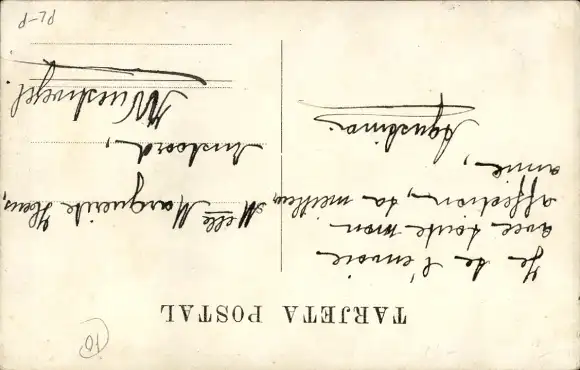 TARJETA POSTAL
Je te l'envoie
avec toute mon
affection, ta meilleure
amie,
Agustina.
Melle Marguerite Heens,
10
PL-P